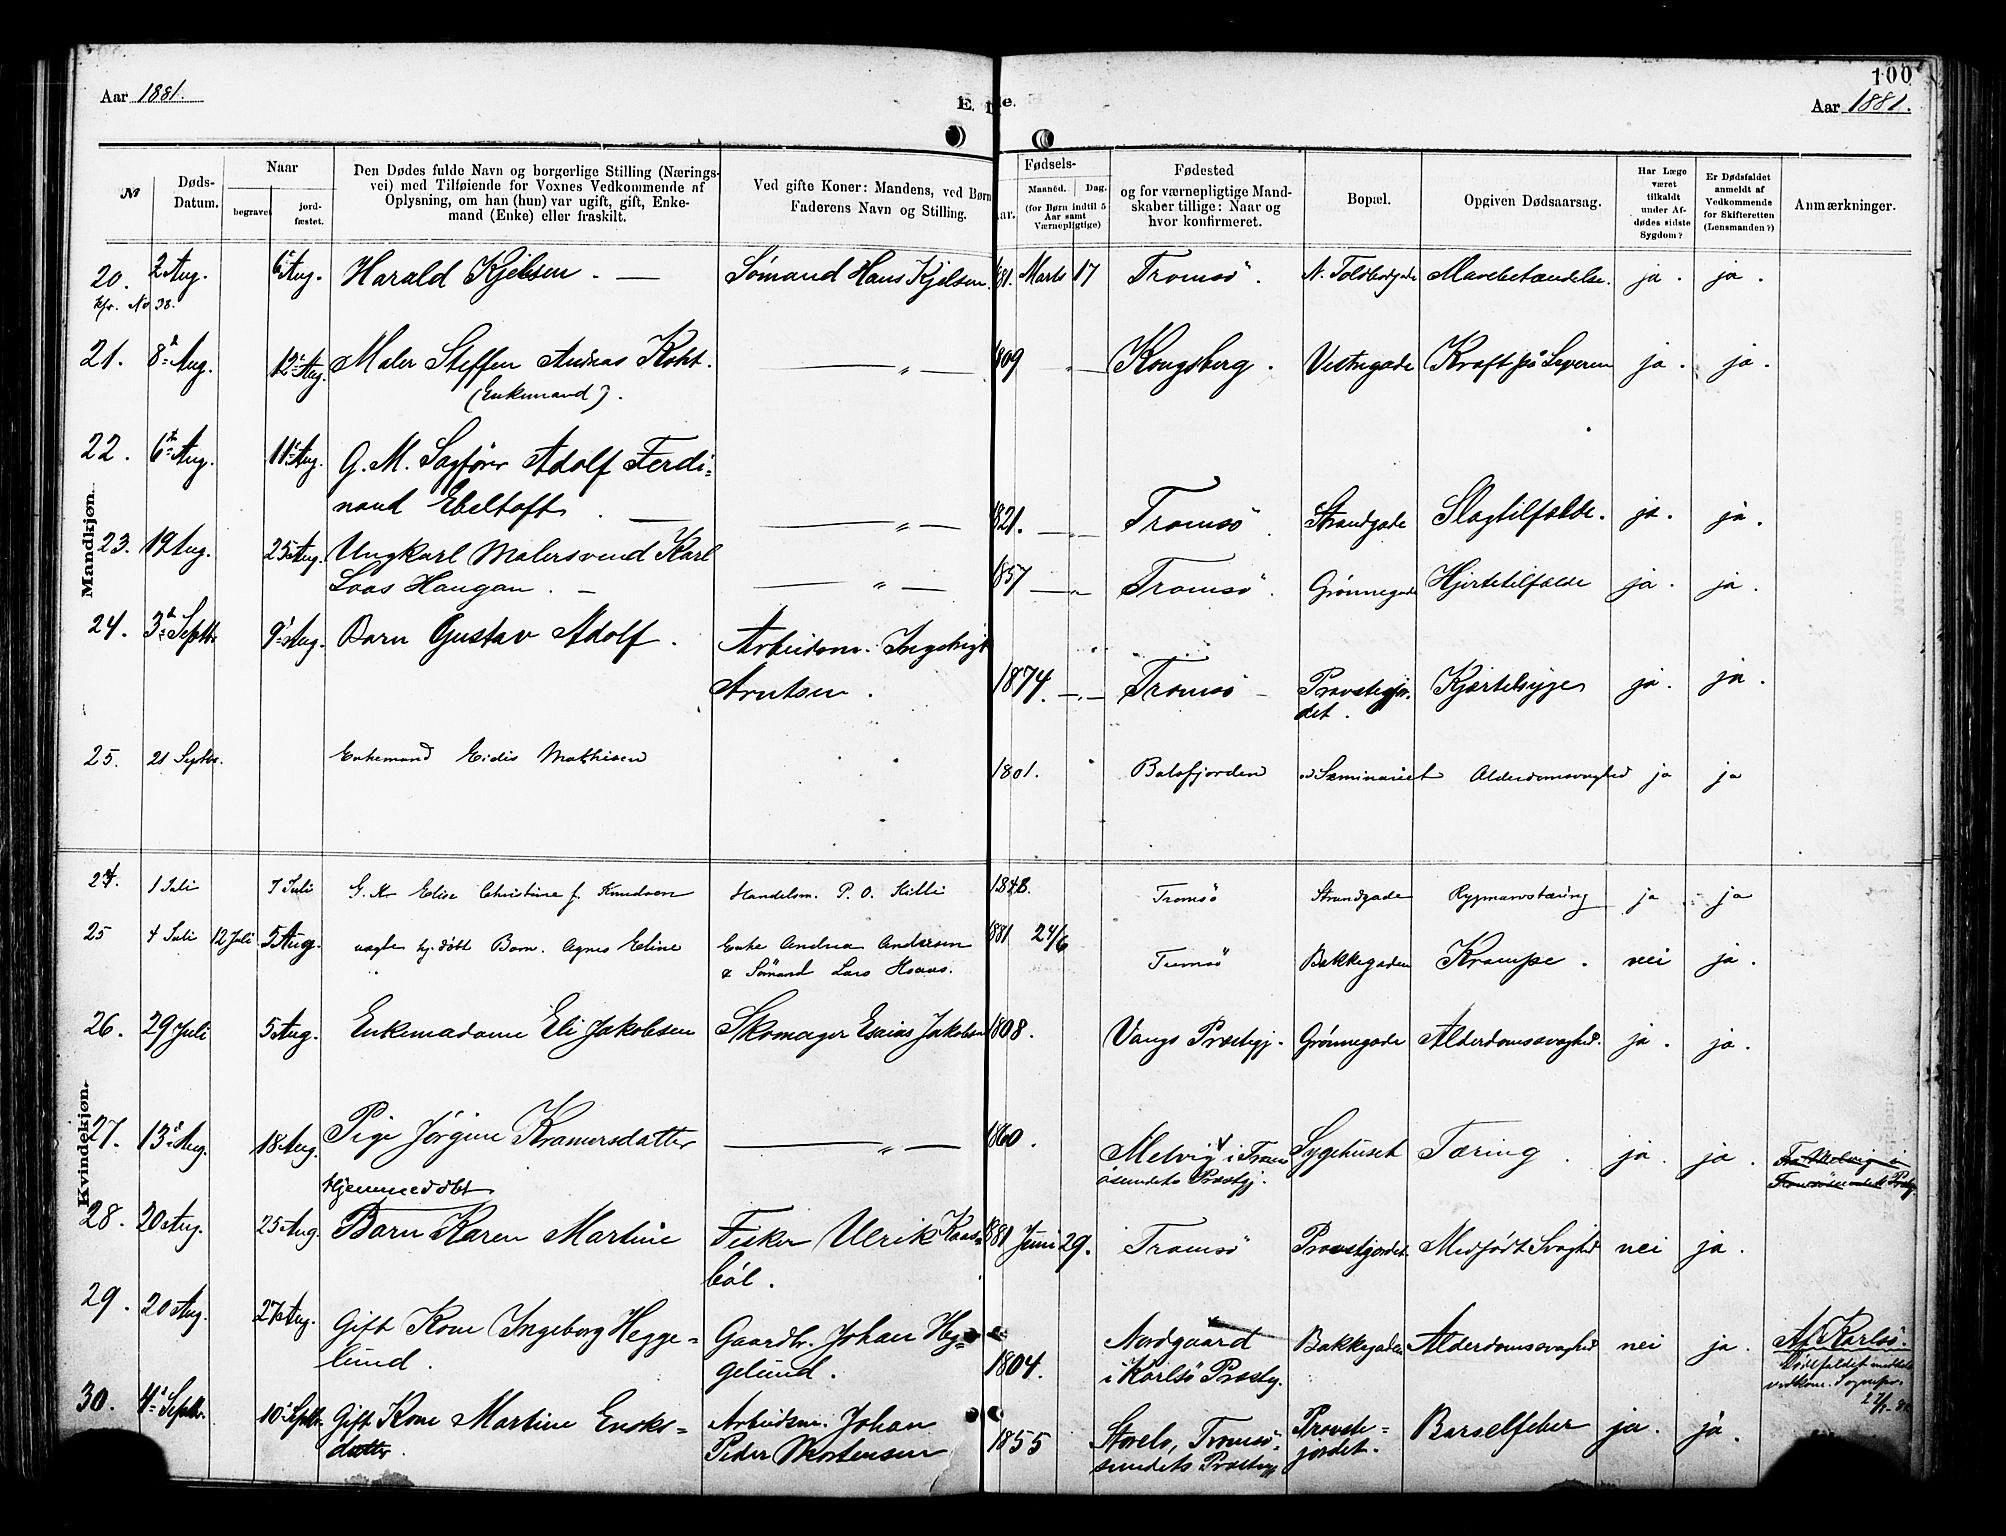 100
Aar 1881.
E. D
de.
Aar 1881.
№
Døds-
Datum.
Naar
begravet
jord-
fæstet.
Den Dødes fulde Navn og borgerlige Stilling (Nærings-
vei) med Tilføiende for Voxnes Vedkommende af
Oplysning, om han (hun) var ugift, gift, Enke-
mand (Enke) eller fraskilt.
Ved gifte Koner: Mandens, ved Børn
Faderens Navn og Stilling.
Fødsels-
Aar.
Maaned.
Dag.
(for Børn indtil 5
Aar samt
Værnepligtige)
Fødested
og for værnepligtige Mand-
skaber tillige: Naar og
hvor konfirmeret.
Bopæl.
Opgiven Dødsaarsag.
Har Læge
været
tilkaldt
under Af-
dødes sidste
Sygdom?
Er Dødsfaldet
anmeldt af
Vedkommende
for Skifteretten
(Lensmanden?)
Anmærkninger.
Mandkjøn.
20. 2 Aug. 6 Aug. Harald Kjelsen. — Sømand Hans Kjelsen. 881. Marts 17 Tromsø. N. Toldbodgade Mavebetændelse. ja. ja.
Kfr. No 38.
21. 8de Aug. 12te Aug. Maler Steffen Andreas Koht. — „ — 1809 „ — Kongsberg. Vestregade Kræft på Leveren ja. ja.
(Enkemand).
22. 6te Aug. 11te Aug. G. M. Sagfører Adolf Ferdi-
nand Ebeltoft. — — „ — 821. — „ — Tromsø. Strandgade Slagtilfælde. ja. ja.
23. 19 Aug. 25 Aug. Ungkarl Malersvend Karl
Loas Haugan. — — „ — 1857 — „ Tromsø. Grønnegade Hjertetilfælde ja. ja
24. 3de Septbr. 9de Aug. Barn Gustav Adolf. Arbeidsm. Ingebrigt
Arntsen. 1874. — „ — Tromsø — Provstegjor- Kjertelsyge ja. ja.
det.
25. 21 Septbr. Enkemand Eidis Mathisen 1801. Balsfjorden v. Seminariet Alderdomssvaghed ja ja
Kvindekjøn.
24. 1 Juli 7 Juli G. K. Elise Christine f. Knudsen Handelsm. P. O. Killi 1848. Tromsø Strandgade Rygmarvstæring ja ja
25 4 Juli 12 Juli 5 Aug. uægte hj. døbt Barn. Agnes Eline Enke Andrea Andersen 881 24/6 Tromsø Bakkegaden Krampe. nei ja.
& Sømand Lars Haaas.
26. 29 Juli 5 Aug. Enkemadame Eli Jakobsen Skomager Esaias Jakobsen 1808. Vangs Præstegj. Grønnegade Alderdomssvaghed. ja. ja.
27. 13de Aug. 18 Aug. Pige Jørgine Kramersdatter — „ — 1860. Melvig i Trom- Sygehuset Tæring. ja. ja.
øsundets Præstgj.
Hjemmedøbt
28. 20 Aug. 25 Aug. Barn Karen Martine Fisker Ulrik Kaas- 881 Juni 29. Tromsø Provstjordet Medfødt Svaghed nei ja.
bøl.
29. 20 Aug. 27 Aug. Gift Kone Ingeborg Hegge-
lund. Gaardbr. Johan Heg-
gelund. 1804. Nordgaard
i Karlsø Præstg. Bakkegaden Alderdomssvaghed nei ja. Af Karlsø.
Dødsfaldet meddelt
vedkom. Sognepr.
30. 4de Septbr. 10de Septbr. Gift Kone Martine Enoks-
datter. Arbeidsm. Johan
Peder Mortensen 1855 Storelv, Tromsø-
sundets Præstegj Provste-
jordet. Barselfeber ja. ja.